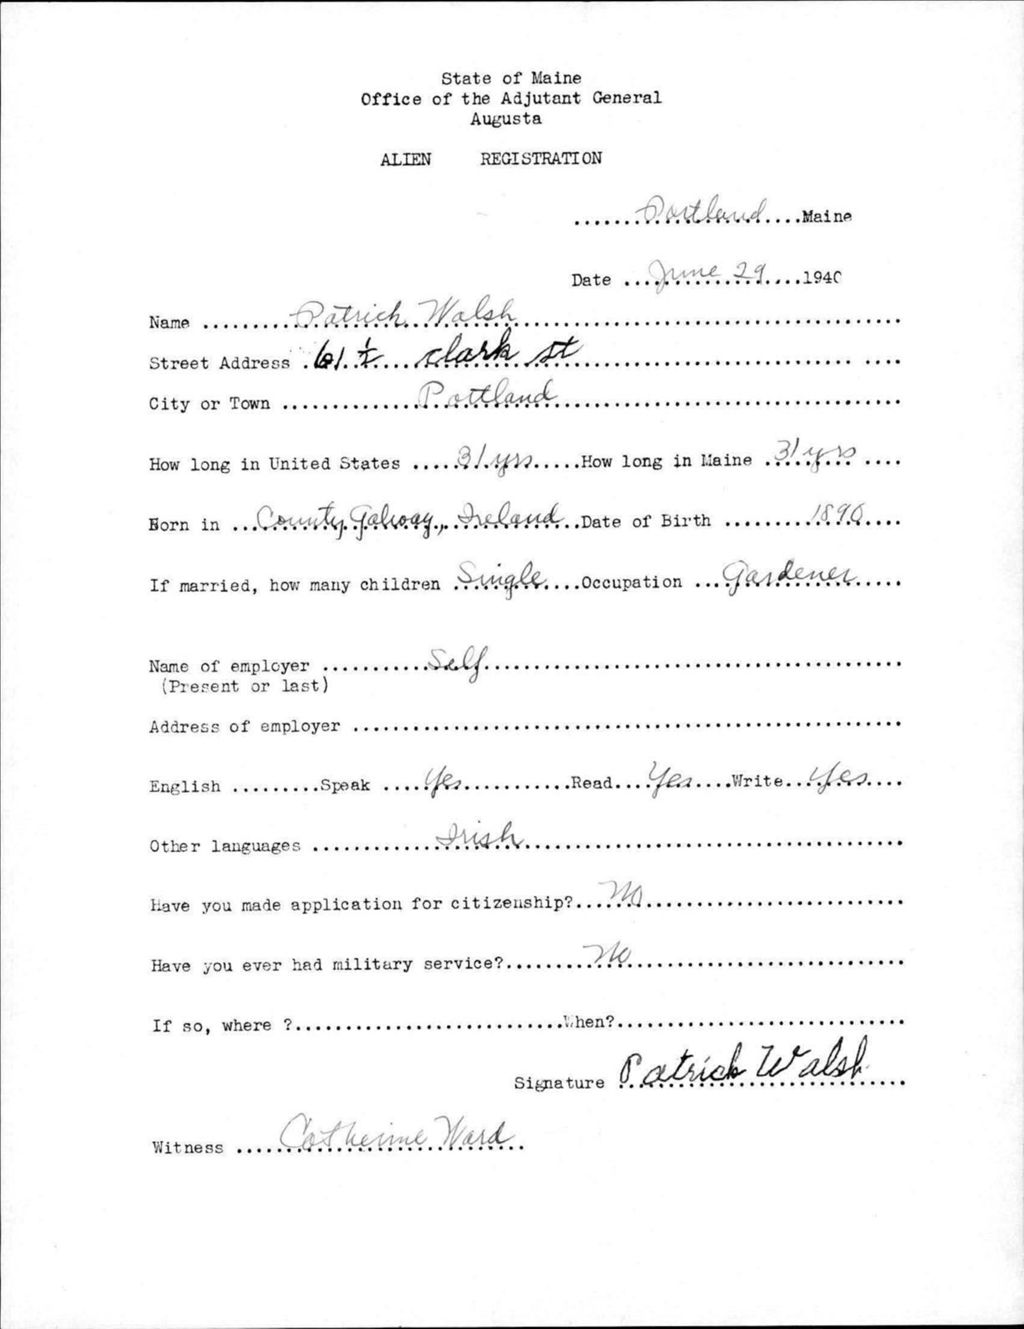 State of Maine
Office of the Adjutant General
Augusta
ALIEN REGISTRATION
.......Portland....Maine
Date ...June 29....1940
Name .........Patrick Walsh...................................
Street Address .61 ½ .... clark st.............................. ....
City or Town .............Portland...................................
How long in United States .....31 yrs.....How long in Maine .31 yrs ....
Born in ...County Galway, Ireland..Date of Birth .........1890....
If married, how many children .Single....Occupation ...Gardener.....
Name of employer ...........Self.........................................
(Present or last)
Address of employer .......................................................
English .........Speak ....Yes...........Read....Yes....Write..Yes....
Other languages .............Irish......................................
Have you made application for citizenship?...No..........................
Have you ever had military service?.........No...........................
If so, where ?...........................When?.............................
Signature Patrick Walsh
Witness ....Catherine Ward.